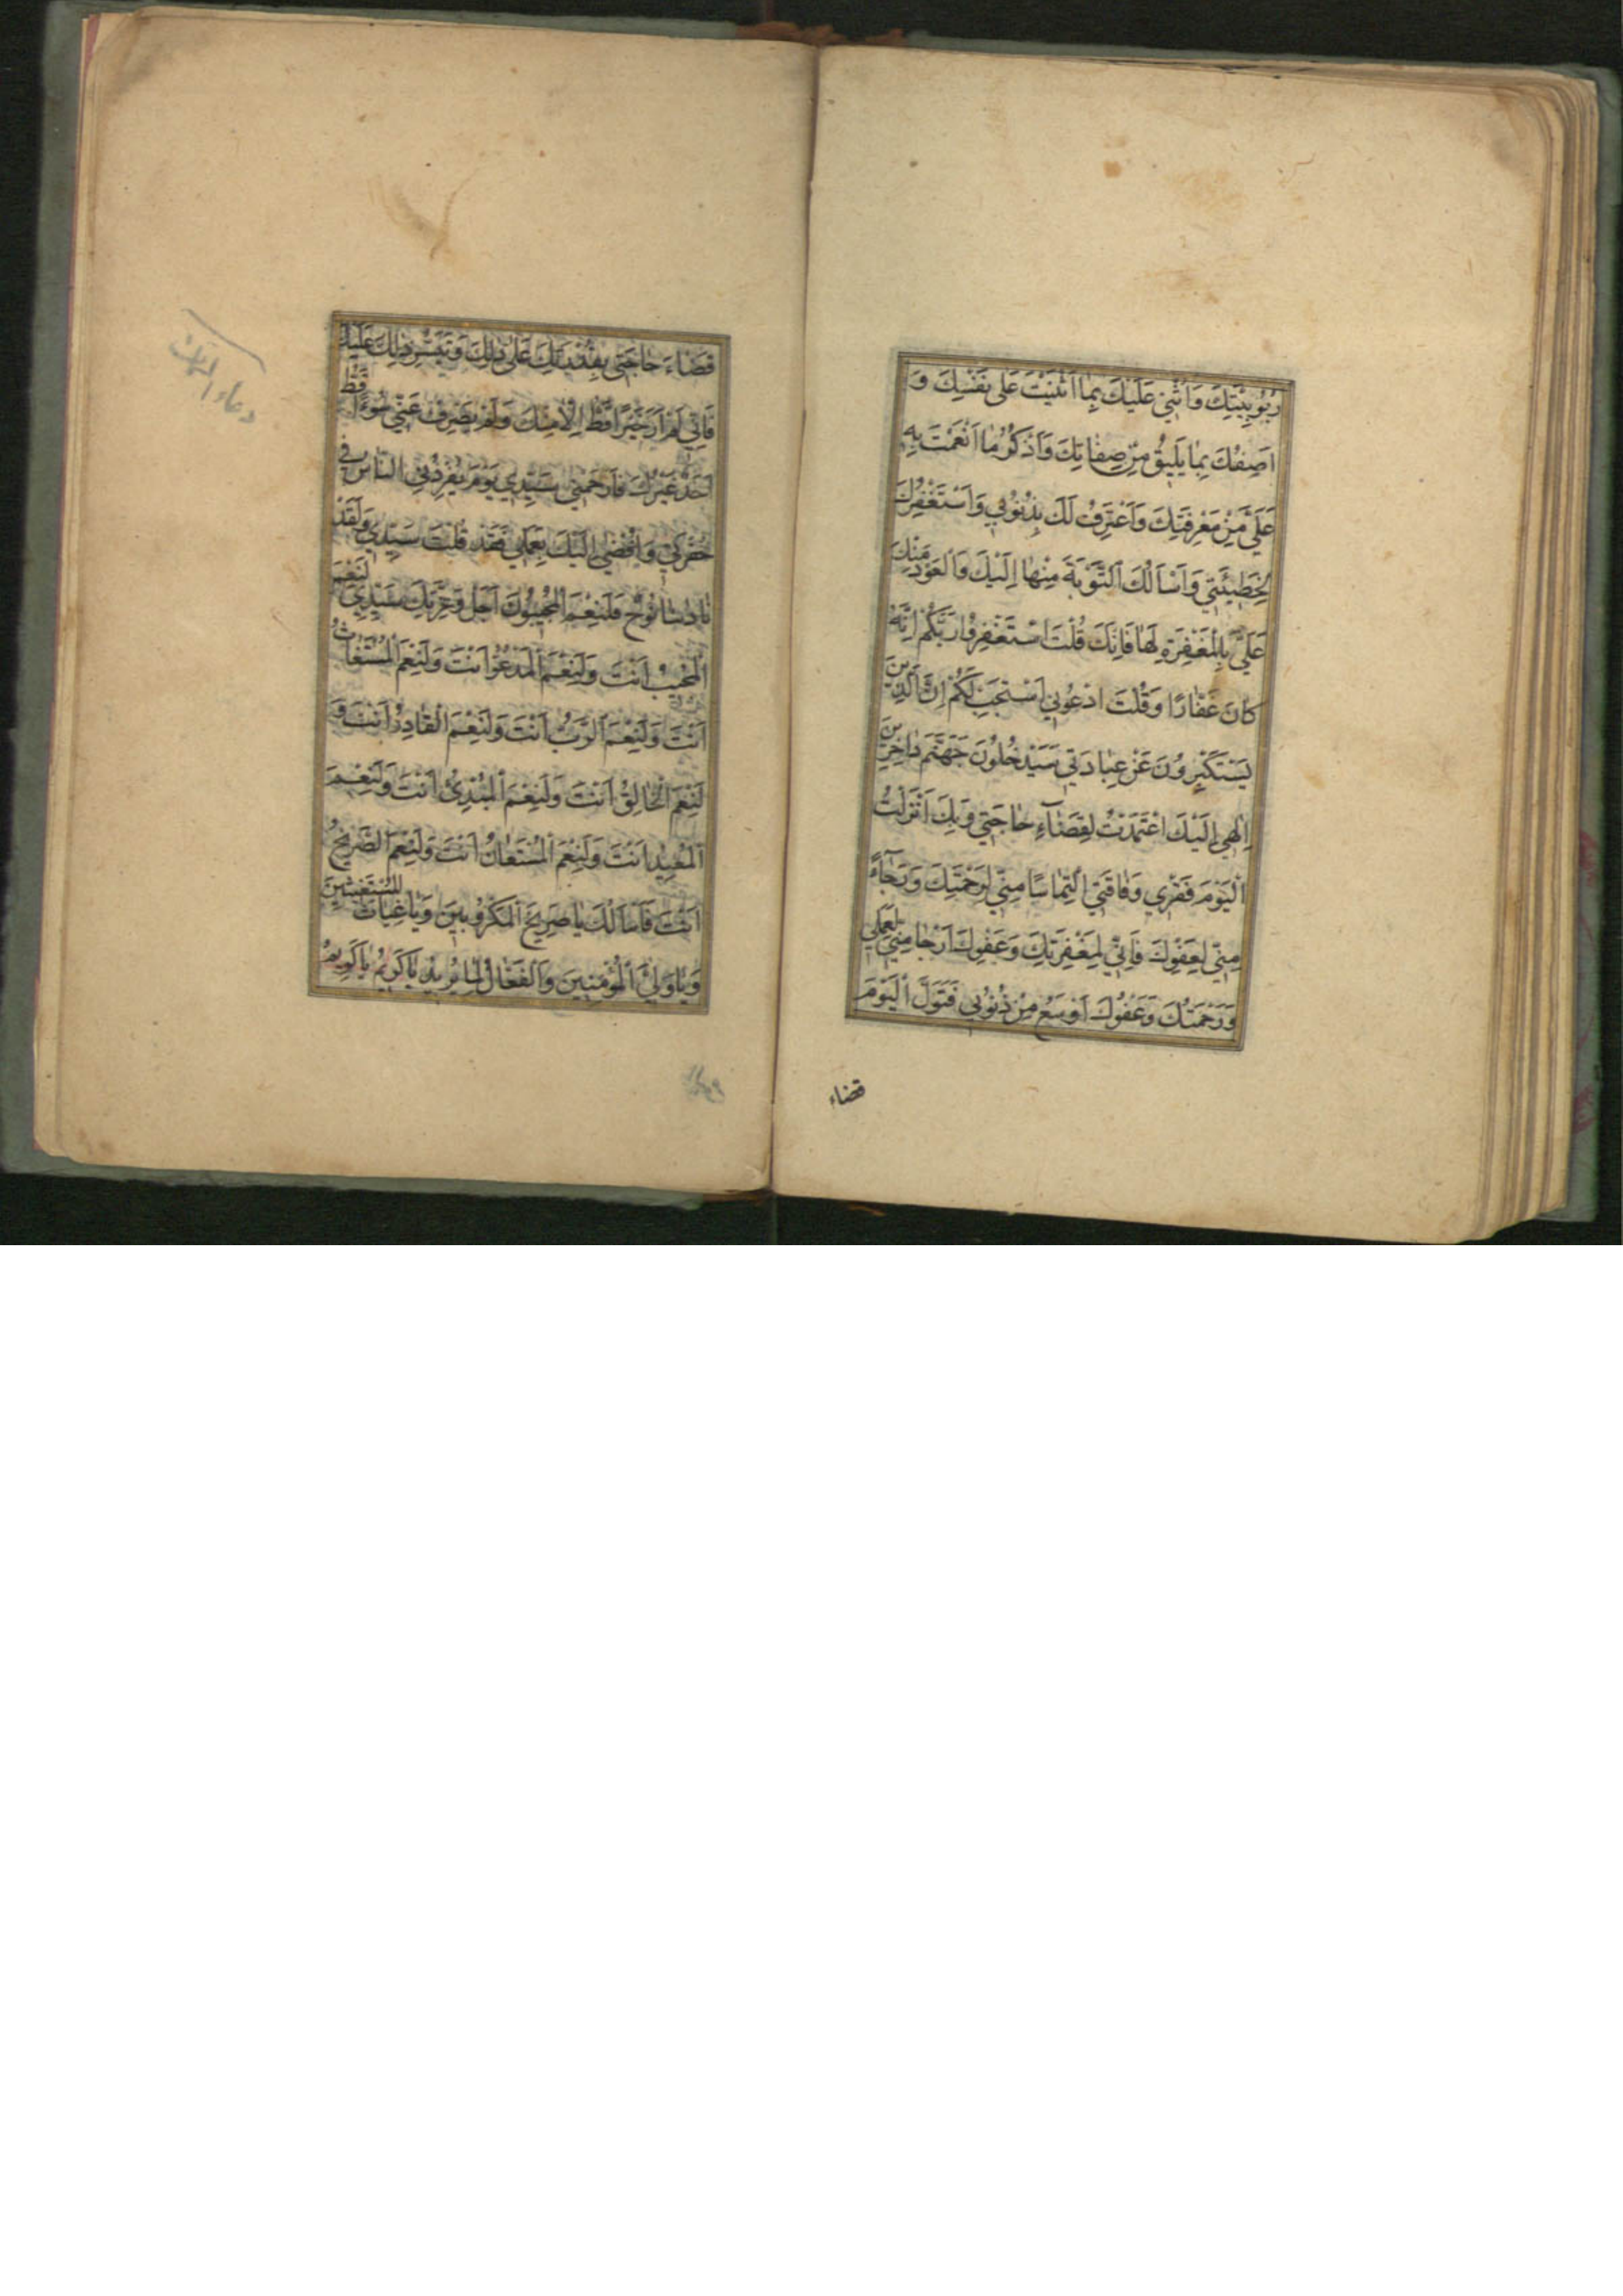 رُبُوبِيَّتِكَ وَاُثْنِي عَلَيْكَ بِمَا اَثْنَيْتَ عَلٰى نَفْسِكَ وَ
اَصِفُكَ بِمَا يَلِيقُ مِنْ صِفَاتِكَ وَاَذْكُرُ مَا اَنْعَمْتَ بِهِ
عَلَىَّ مِنْ مَعْرِفَتِكَ وَاَعْتَرِفُ لَكَ بِذُنُوبِي وَاَسْتَغْفِرُكَ
لِخَطِيئَتِي وَاَسْاَلُكَ اَلتَّوْبَةَ مِنْهَا اِلَيْكَ وَالْعَوْدَ مِنْكَ
عَلَيَّ بِالْمَغْفِرَةِ لَهَا فَاِنَّكَ قُلْتَ اسْتَغْفِرُوا رَبَّكُمْ اِنَّهُ
كَانَ غَفَّارًا وَقُلْتَ ادْعُونِي اَسْتَجِبْ لَكُمْ اِنَّ اَلَّذِينَ
يَسْتَكْبِرُونَ عَنْ عِبَادَتِي سَيَدْخُلُونَ جَهَنَّمَ دَاخِرِينَ
اِلٰهِي اِلَيْكَ اعْتَمَدْتُ لِقَضَاءِ حَاجَتِي وَبِكَ اَنْزَلْتُ
اَلْيَوْمَ فَقْرِي وَفَاقَتِي الْتِمَاسًا مِنِّي لِرَحْمَتِكَ وَرَجَاءً
مِنِّي لِعَفْوِكَ فَاِنِّي لِمَغْفِرَتِكَ وَعَفْوِكَ اَرْجَا مِنِّي لِعَمَلِي
وَرَحْمَتُكَ وَعَفْوُكَ اَوْسَعُ مِنْ ذُنُوبِي فَتَوَلَّ اَلْيَوْمَ
قضاء
قَضَاءَ حَاجَتِي بِقُدْرَتِكَ عَلٰى ذٰلِكَ وَتَيَسُّرِ ذٰلِكَ عَلَيْكَ
فَاِنِّي لَمْ اَرَ خَيْرًا قَطُّ اِلَّا مِنْكَ وَلَمْ يَصْرِفْ عَنِّي سُوءًا قَطُّ
اَحَدٌ غَيْرُكَ فَارْحَمْنِي سَيِّدِي يَوْمَ يُفْرِدُنِي النَّاسُ فِي
حُفْرَتِي وَاُفْضِي اِلَيْكَ بِعَمَلِي فَقَدْ قُلْتَ سَيِّدِي وَلَقَدْ
نَادٰينَا نُوحٌ فَلَنِعْمَ الْمُجِيبُونَ اَجَلْ وَعِزَّتِكَ سَيِّدِي لَنِعْمَ
اَلْمُجِيبُ اَنْتَ وَلَنِعْمَ اَلْمَدْعُوُّ اَنْتَ وَلَنِعْمَ اَلْمُسْتَغَاثُ
اَنْتَ وَلَنِعْمَ اَلرَّبُّ اَنْتَ وَلَنِعْمَ اَلْقَادِرُ اَنْتَ وَ
لَنِعْمَ اَلْخَالِقُ اَنْتَ وَلَنِعْمَ اَلْمُبْدِئُ اَنْتَ وَلَنِعْمَ
اَلْمُعِيدُ اَنْتَ وَلَنِعْمَ اَلْمُسْتَعَانُ اَنْتَ وَلَنِعْمَ اَلصَّرِيخُ
اَنْتَ فَاَسْاَلُكَ يَا صَرِيخَ اَلْمَكْرُوبِينَ وَيَا غِيَاثَ اَلْمُسْتَغِيثِينَ
وَيَا وَلِيَّ اَلْمُؤْمِنِينَ وَاَلْفَعَّالُ لِمَا يُرِيدُ يَا كَرِيمُ يَا كَرِيمُ